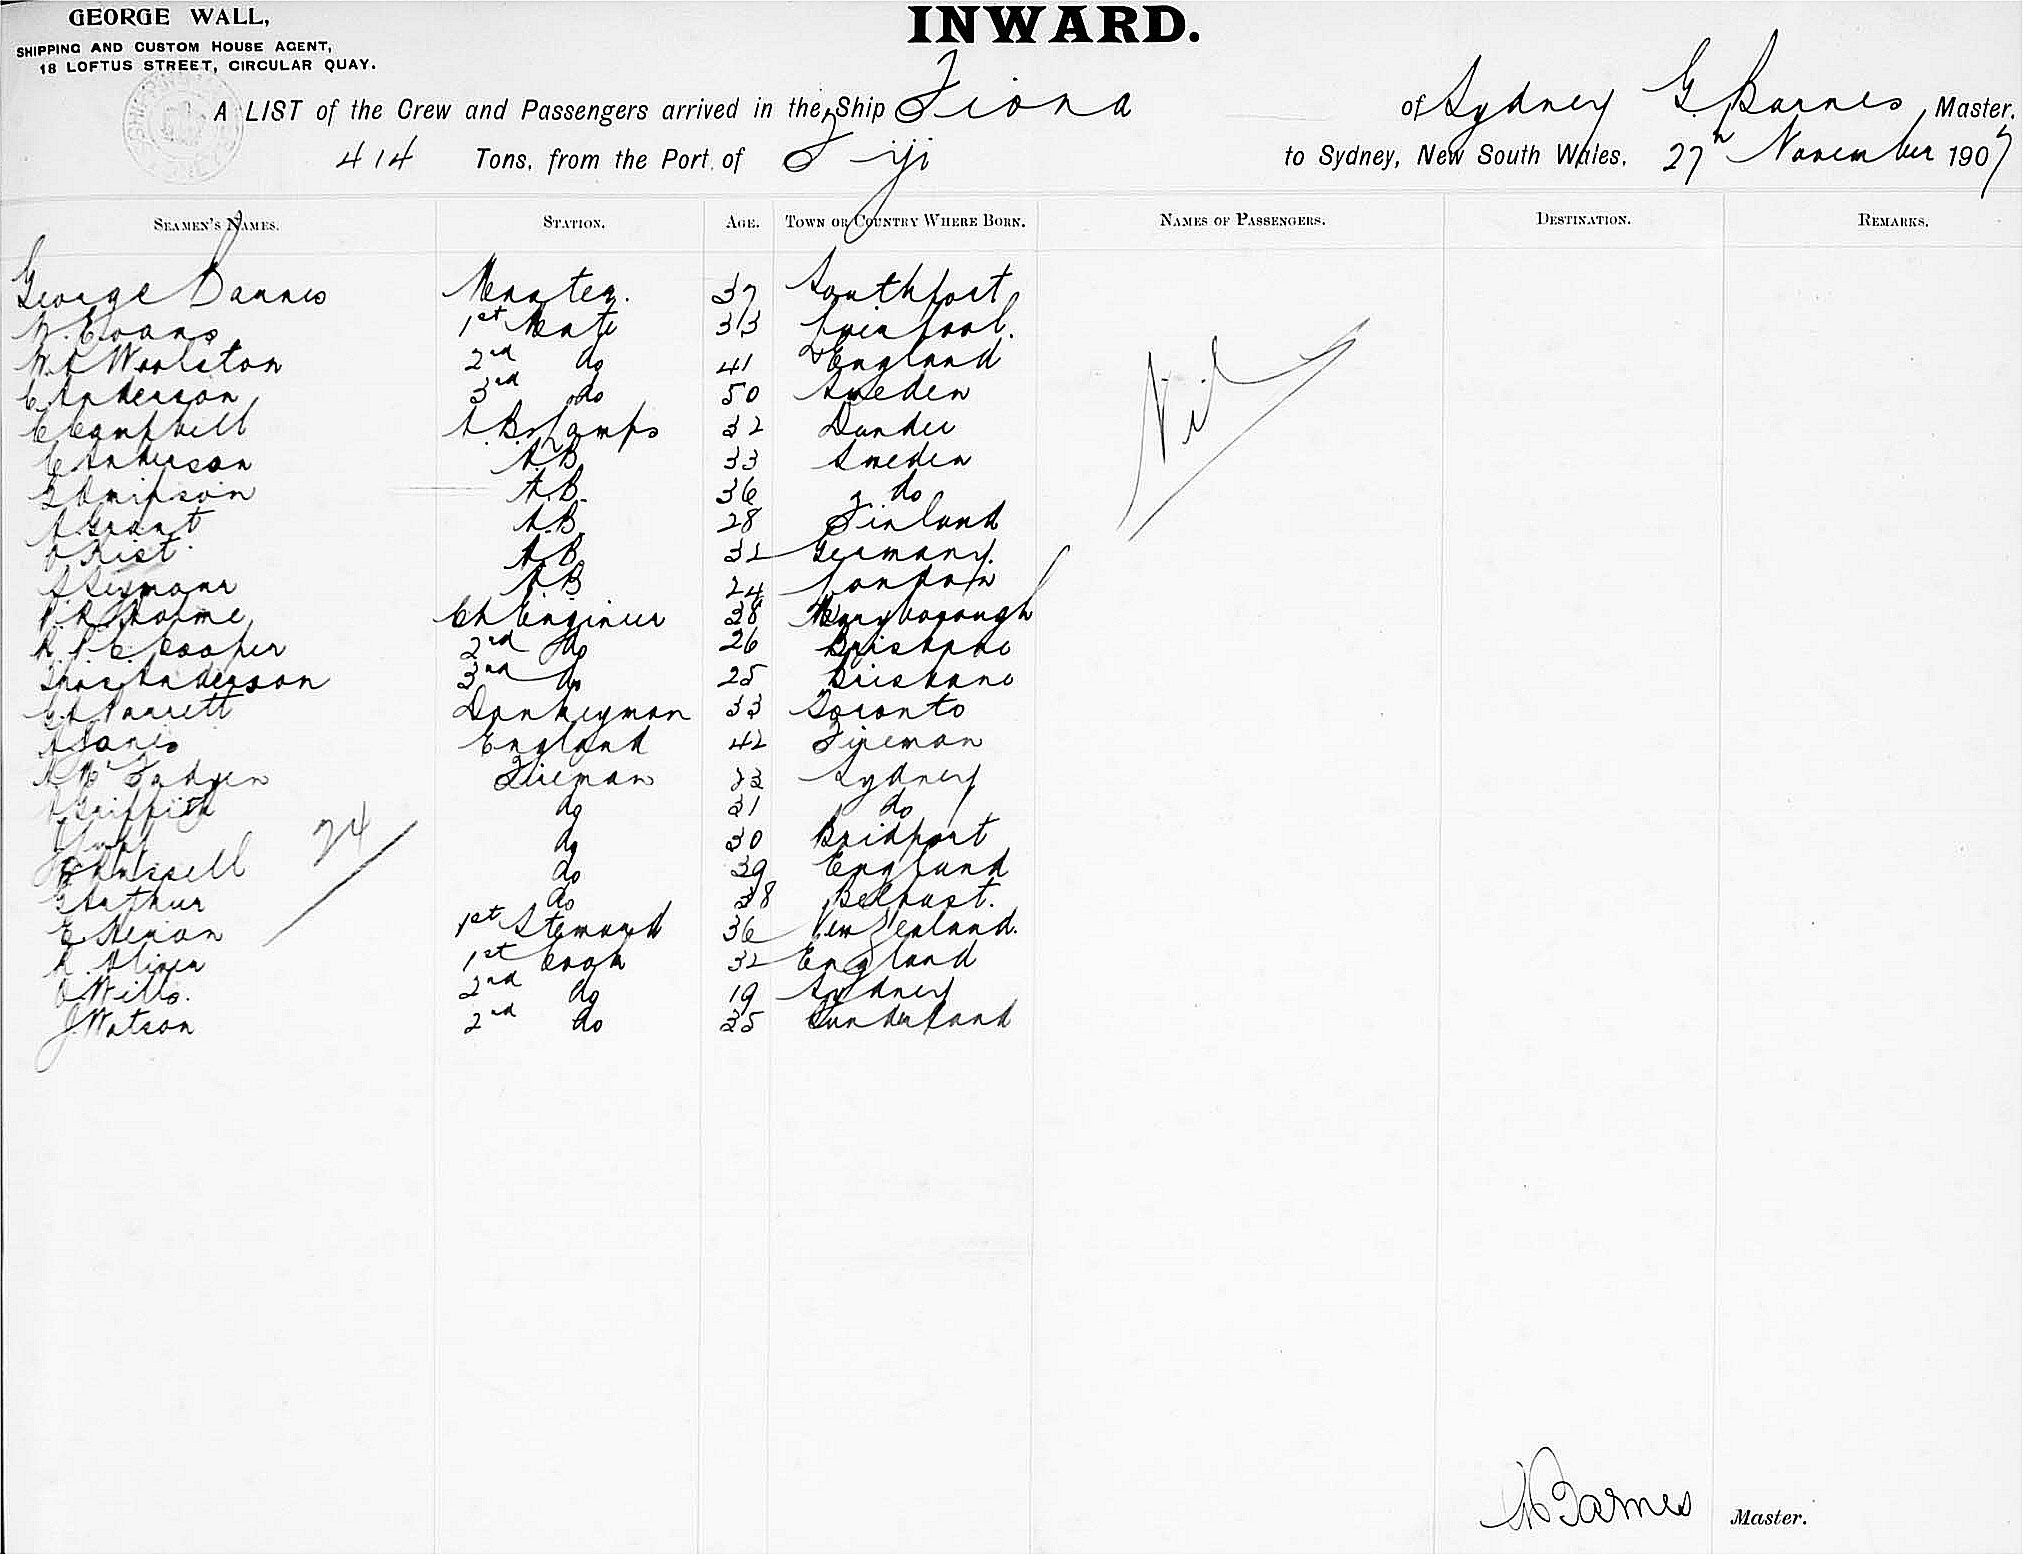 GEORGE WALL,
SHIPPING AND CUSTOM HOUSE AGENT,
18 LOFTUS STREET, CIRCULAR QUAY.
INWARD.
A LIST of the Crew and Passengers arrived in the Ship Fiona of Sydney G. Barnes, Master,
414 Tons, from the Port of Fiji to Sydney, New South Wales, 27th November 1907
SEAMEN'S NAMES. STATION. AGE. TOWN OR COUNTRY WHERE BORN. NAMES OF PASSENGERS. DESTINATION. REMARKS.
George Barnes Master. 37 Southport
W. Evans 1st Mate 33 Liverpool.
W. A Woolston 2nd do 41 England
C. Anderson 3rd do 50 Sweden
C Campbell A.B. Lamps 32 Dundee
C Anderson A.B. 33 Sweden
A.B. 36 do
A Grant A.B. 28 Finland
A.B. 32 Germany.
A Seymour A.B 24 London
Ch Engineer 28 Maryborough
Cooper 2nd do 26 Brisbane
Thos. Anderson 3rd do 25 Brisbane
Donkeyman 33 Toronto
A Jones England 42 Fireman
A McFadyen Fireman 23 Sydney
A Griffith do 31 do
do 30 Bridport
Russell do 39 England
G Arthur do 38 Belfast.
E 1st Steward 36 New Zealand.
1st Cook 32 England
C Wills. 2nd do 19 Sydney
J. Watson 2nd do 25 Sunderland
Nil
24
Barnes Master.